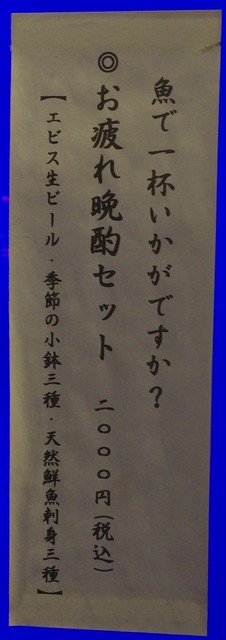 魚で一杯いかがですか？
◎お疲れ晩酌セット 二〇〇〇円(税込)
【エビス生ビール・季節の小鉢三種・天然鮮魚刺身三種】